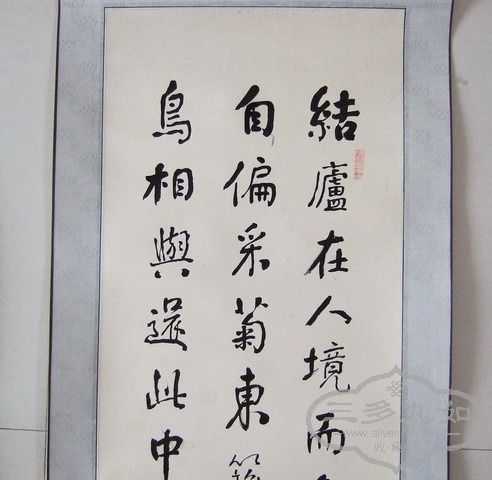 結廬在人境而
自偏采菊東籬
鳥相與還此中
三多九如
www.silver
收藏